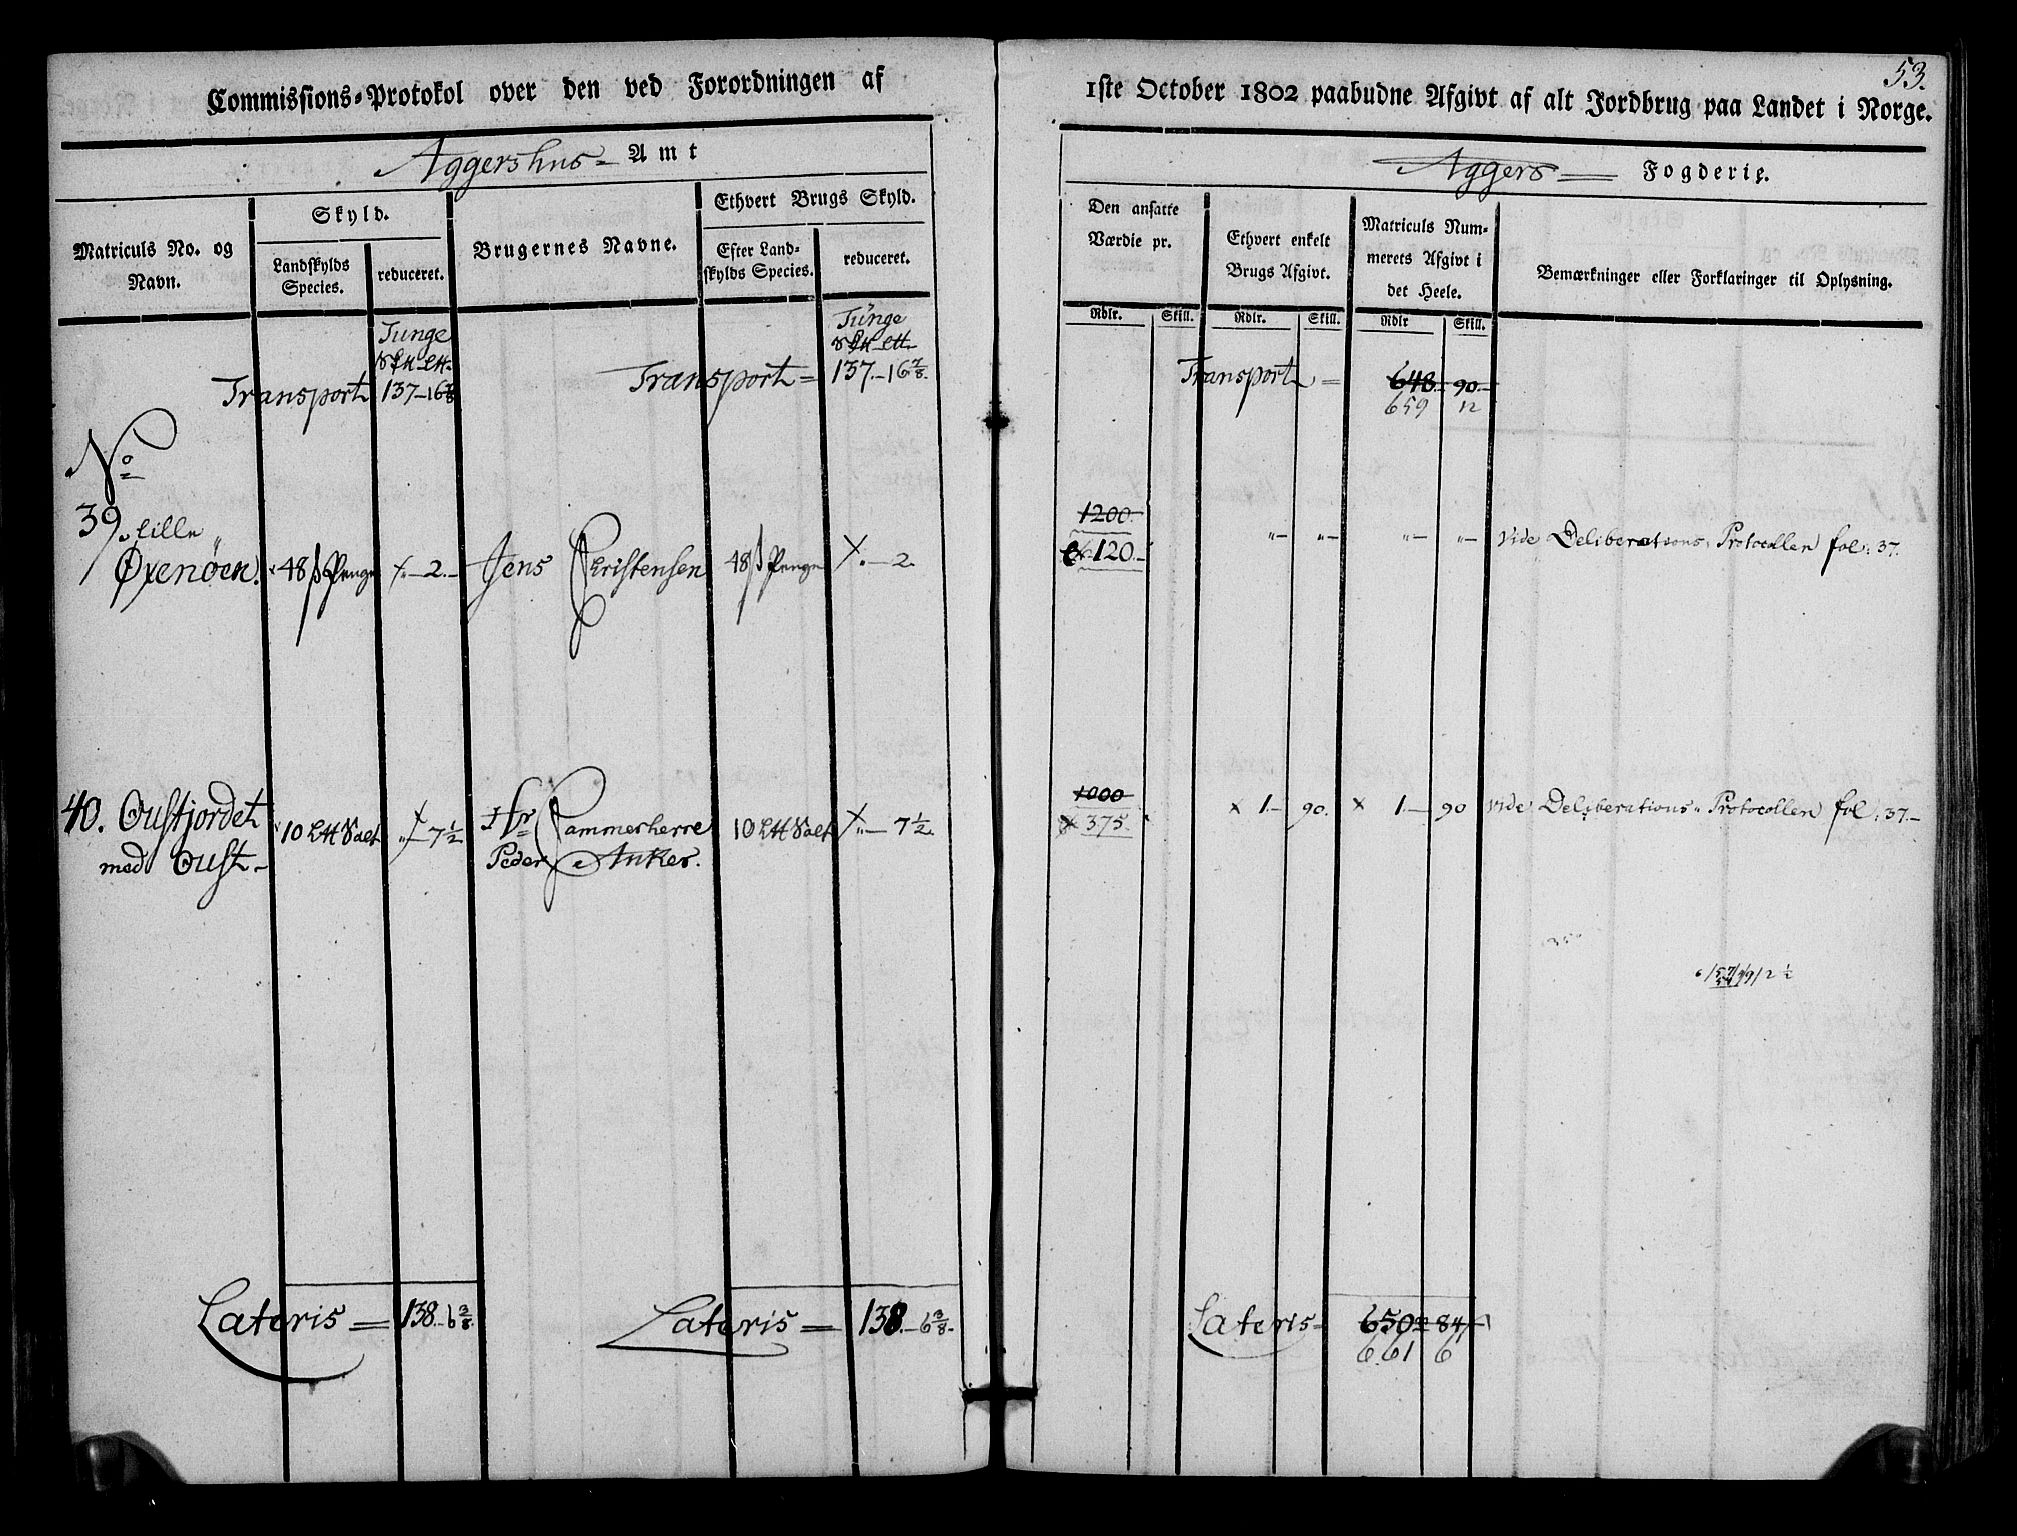 53.
Commissions-Protokol over den ved Forordningen af 1ste October 1802 paabudne Afgivt af alt Jordbrug paa Landet i Norge.
Aggershus Amt
Aggers Fogderie.
Matriculs No. og Navn.
Skyld.
Landskylds Species.
reduceret.
Brugernes Navne.
Ethvert Brugs Skyld.
Efter Landskylds Species.
reduceret.
Den ansatte Værdie pr.
Rdlr. Skill.
Ethvert enkelt Brugs Afgivt.
Rdlr. Skill.
Matriculs Nummerets Afgivt i det Heele.
Rdlr Skill.
Bemærkninger eller Forklaringer til Oplysning.
Tunge
Transport 137-16 7/8
Tunge
Transport = 137.-16 7/8.
Transport = 648.- 90.-
659 12
No
39. Lille
Øxenøen. 48 ß Penge -2.- Jens Christensen 48 ß Penge -2.
1200.
120.-
"- "- "- "- vide Deliberations Protocollen fol: 37.
40. Oustjordet
med Oust- 10 Salt 7 1/2 Hr Cammerherre
Peder Anker. 10 Salt 7 1/2.
1000
375.
1- 90. 1- 90 vide Deliberations Protocollen fol: 37.-
Lateris = 138.-6 3/8. Lateris = 138.-6 3/8.
Lateris- 650 84
661 6